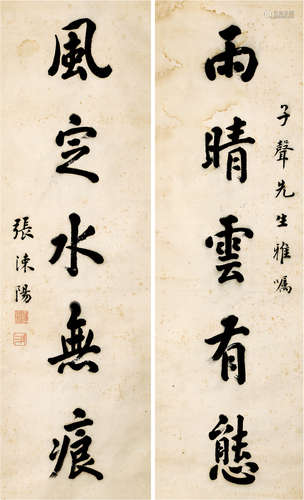 子聲先生雅嘱
雨晴雲有態
風定水無痕
張涑陽